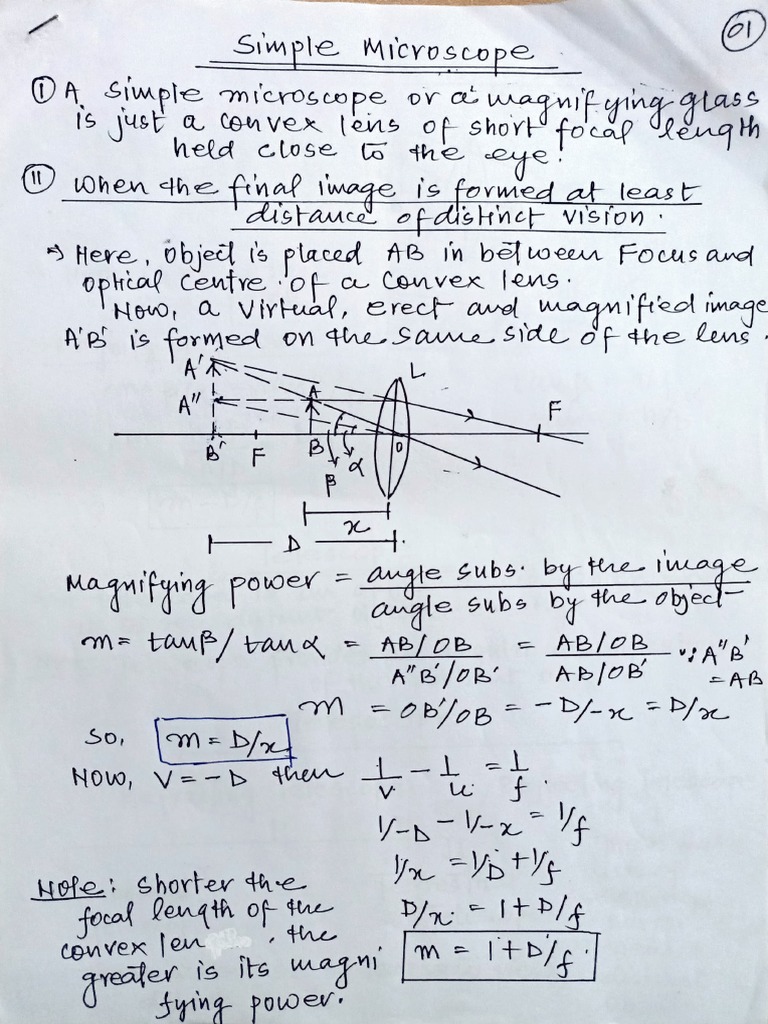 01
Simple Microscope
① A simple microscope or a magnifying glass
is just a convex lens of short focal length
held close to the eye.
⑪ When the final image is formed at least
distance of distinct vision.
⇒ Here, object is placed AB in between Focus and
optical centre of a convex lens.
Now, a virtual, erect and magnified image
A'B' is formed on the same side of the lens.
A' L
A" A F
B' F B O
β α
x
D
Magnifying power = angle subs. by the image
angle subs by the object
m = tanβ/tanα = AB/OB = AB/OB ∵ A"B'
A"B'/OB' AB/OB' = AB
m = OB'/OB = -D/-x = D/x
So, m = D/x
Now, V = -D then 1/v - 1/u = 1/f
1/-D - 1/-x = 1/f
1/x = 1/D + 1/f
D/x = 1 + D/f
m = 1 + D/f
Note: shorter the
focal length of the
convex len , the
greater is its magni
fying power.